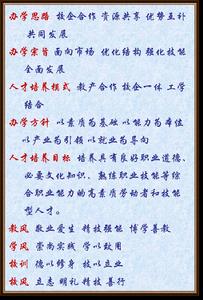 办学思路 校企合作 资源共享 优势互补
共同发展
办学宗旨 面向市场 优化结构 强化技能
全面发展
人才培养模式 教产合作 校企一体 工学
结合
办学方针 以素质为基础 以能力为本位
以产业为引领 以就业为导向
人才培养目标 培养具有良好职业道德、
必要文化知识、熟练职业技能等综
合职业能力的高素质劳动者和技能
型人才。
教风 敬业爱生 精技强能 博学善教
学风 崇尚实践 学以致用
校训 德以修身 技以立业
校风 立志 明礼 精技 善行